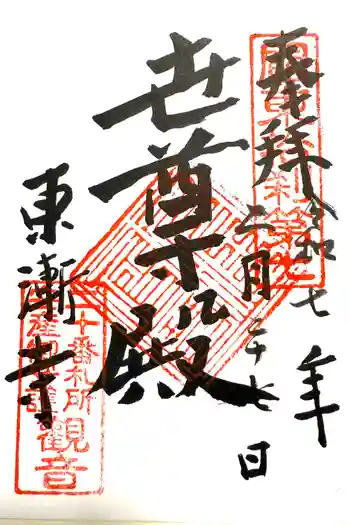 奉拝
令和七年
二月二十七日
世尊殿
東漸寺
十番札所
観音